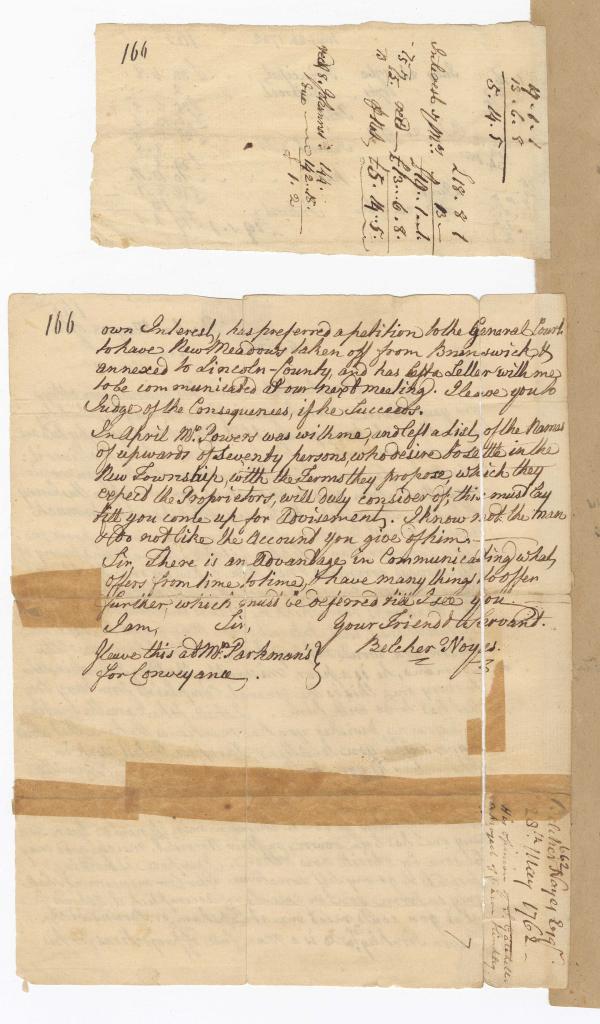 166
19. 1. 1
13. 6. 8
5. 14. 5
£18. 8 1
Interest of Mr
13
£19. 1. 1.
£13. 6. 8.
£5. 14. 5.
recd 8. Johannes
142. 18.
1. 2
166
own Interest, has preferred a petition to the General Court
to have New Meadows taken off from Brunswick &
annexed to Lincoln-County, and has left a Letter with me
to be communicated at our next meeting. I leave you to
Judge of the Consequences, if he Succeeds.
In April Mr. Powers was with me, and left a List, of the Names
of upwards of Seventy persons, who desire to Settle in the
New Township, with the Terms they propose, which they
expect the Proprietors, will duly consider of, this must lay
till you come up for Advisement. I know not the man
& do not like the Account you give of him.
Sir, There is an Advantage in Communicating what
offers from time to time, I have many things to offer
further, which must be deferred till I see you.
I am, Sir, Your Friend & Servant.
Belcher Noyes.
I leave this at Mr. Parkman's
for Conveyance.
Belcher Noyes Esqr.
662
28th May 1762
His opinion